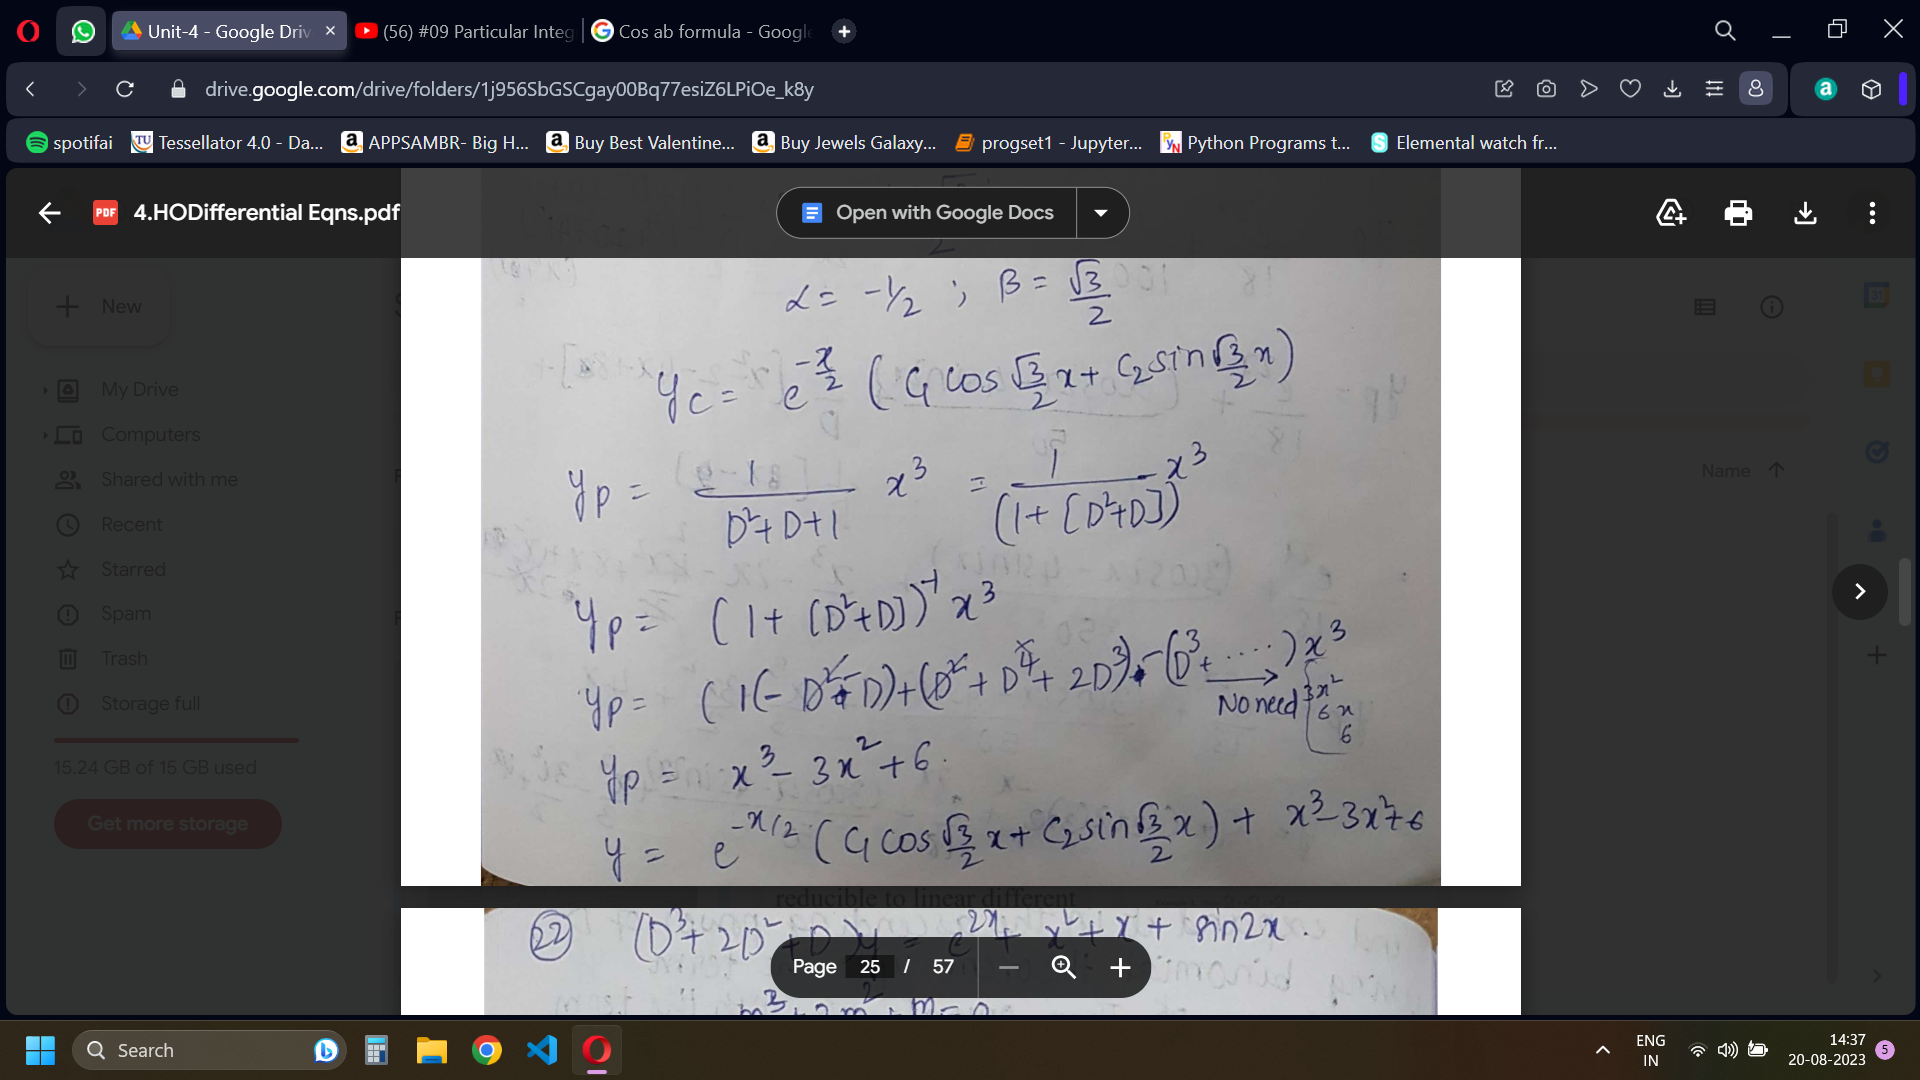 Unit-4 - Google Driv
(56) #09 Particular Integ
Cos ab formula - Googl
drive.google.com/drive/folders/1j956SbGSCgay00Bq77esiZ6LPiOe_k8y
spotifai
Tessellator 4.0 - Da...
APPSAMBR- Big H...
Buy Best Valentine...
Buy Jewels Galaxy...
progset1 - Jupyter...
Python Programs t...
Elemental watch fr...
PDF 4.HODifferential Eqns.pdf
Open with Google Docs
New
My Drive
Computers
Shared with me
Recent
Starred
Spam
Trash
Storage full
15.24 GB of 15 GB used
Get more storage
Name
α = -1/2 ; β = √3/2
yc = e^(-x/2) (C1 cos √3/2 x + C2 sin √3/2 x)
yp = 1/(D²+D+1) x³ = 1/(1+[D²+D]) x³
yp = (1+[D²+D])⁻¹ x³
yp = (1(-D²-D)+(D²+D⁴+2D³)-(D³+.....)x³
No need
3x²
6x
6
yp = x³-3x²+6.
y = e^(-x/2) (C1 cos √3/2 x + C2 sin √3/2 x) + x³-3x²+6
reducible to linear different
22 (D³+2D²+D)y = e^(2x) + x²+x+ sin2x.
m³+2m²+m=0
Page 25 / 57
Search
ENG
IN
14:37
20-08-2023
5